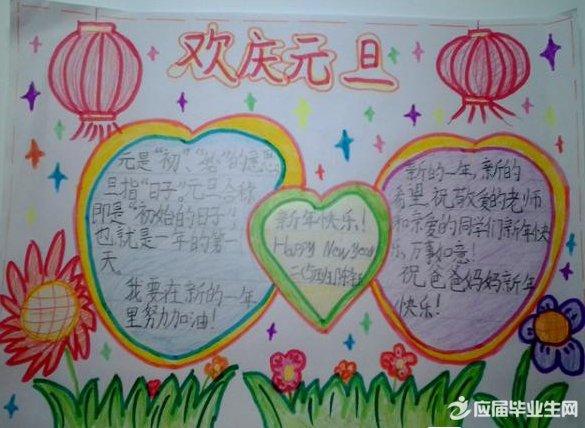 欢庆元旦
元是“初”、“始”的意思
旦指“日子”。元旦合称
即是“初始的日子”，
也就是一年的第一
天
我要在新的一年
里努力加油！
新年快乐！
Happy New Year
新的一年，新的
希望，祝敬爱的老师
和亲爱的同学们新年快
乐，万事如意！
祝爸爸妈妈新年
快乐！
应届毕业生网